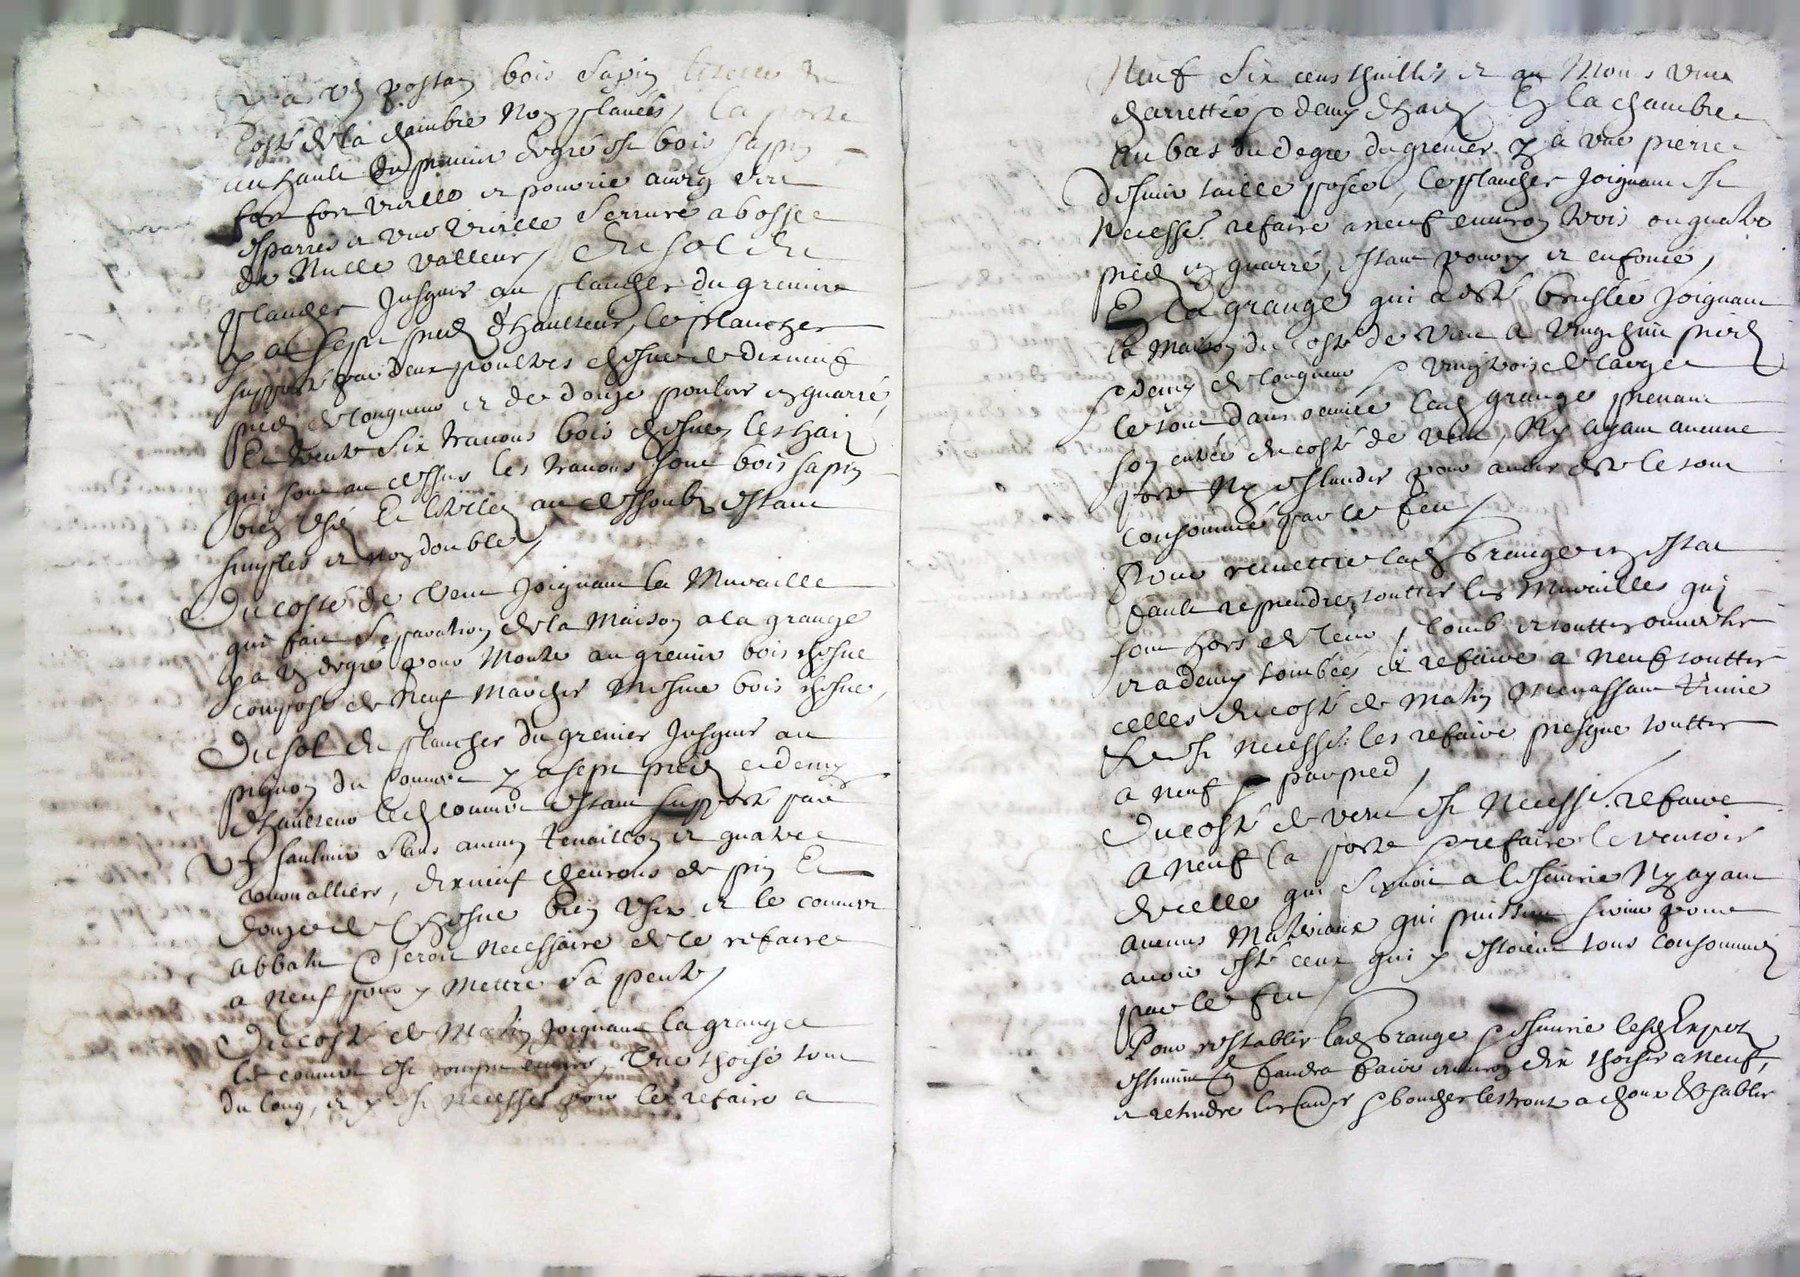 y a un postan bois sapin literé du
costé de la chambre non planées, la porte
au hault du premier degré est bois sapin
fort vielle et pourrie aveq deux
esparres et une vieille serrure a bosse
de nulle valleur, du sol du
plancher jusques au plancher du grenier
y a sept pied d'haulteur, le plancher
supporté par deux poultres chesne de dixneuf
pied de longueur et de douze poulces en quarré,
Et trente six travons bois chesne, les haix
qui sont au dessus les travons sont bois sapin
bien usé Et literéz au dessoubz estant
simples et non double,
Du costé de vent joignant la muraille
qui fait separation de la maison a la grange
y a un degré pour monter au grenier bois chesne
composé de neuf marches mesme bois chesne,
Du sol du plancher du grenier jusques au
pignon du couvert y a sept pied et demy
d'haulteur led couvert estant supporté par
un saulmier sans aucun tenaillon et quatre
dixneuf chevrons de pin Et
douze de chesne bien usez et le couvert
abbatu seroit necessaire de le refaire
a neuf pour y mettre sa pente,
Du costé de matin joignant la grange
le couvert est rompu environ une thoise tout
du long, et y est necessé pour le refaire a
neuf six cens thuilles et au moins une
charrettée & demy d'haix, En la chambre
au bas du degré du grenier y a une pierre
taille posée, le plancher joignant est
necessé refaire a neuf environ trois ou quatre
pied en quarré, estant pourry et enfoncé,
En la grange qui a esté bruslée joignant
la maison du costé de vent a vingthuit pied
& demy de longueur & vingtrois de large
le tout dans oeuvre lad grange prenant
son entrée du costé de vent, n'y ayant aucune
porte ny eslandes pour avoir esté le tout
consommé par le feu,
Pour remettre lad grange en estat
fault reprendre touttes les murailles qui
sont hors de leur plomb et touttes ouvertes
et a demy tombées et refaire a neuf touttes
celles du costé de matin menassant ruine
& est necessé les refaire presque touttes
a neuf par pied,
Du costé de vent est necessé refaire
a neuf la porte & refaire le
d'icelle qui servoit a l'escuirie n'y ayant
aucuns materiaux qui puissent servir pour
avoir esté ceux qui y estoient tous consommez
par le feu,
Pour restablir lad grange & escuirie lesd Expertz
estiment quil faudra faire environ dix thoises a neuf,
et reteindre les & boucher les trout a chaux & sable